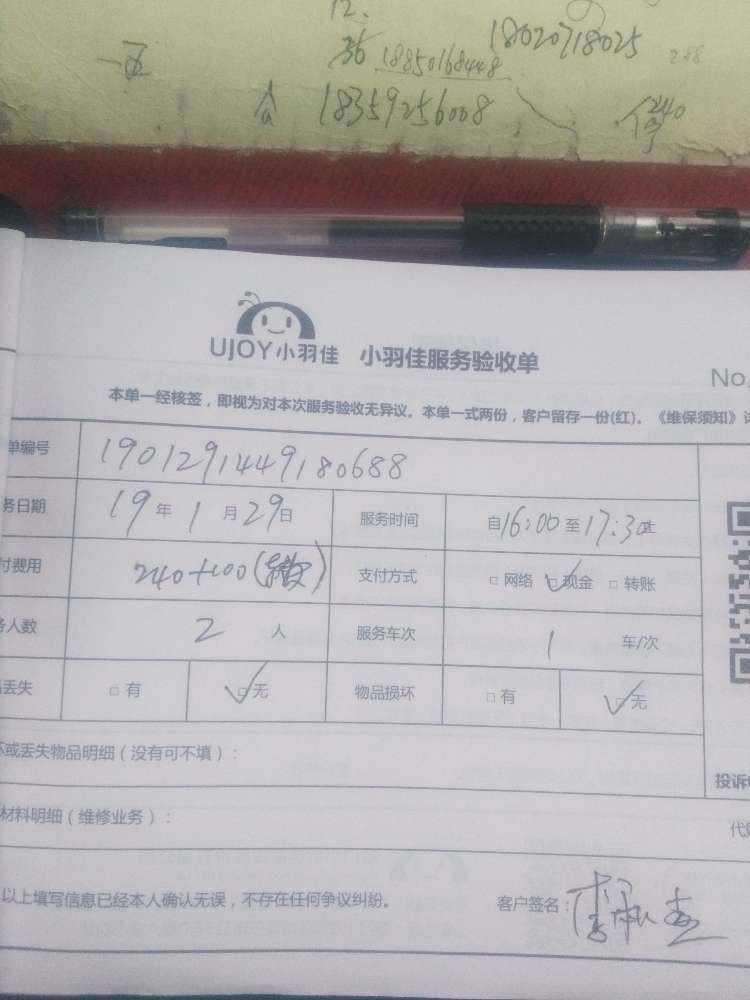 12.
18020718025
18850168448
288
一西
18359256008
240
UJOY小羽佳 小羽佳服务验收单
No.
本单一经核签，即视为对本次服务验收无异议。本单一式两份，客户留存一份(红)。《维保须知》
单编号 1901291449180688
务日期 19年1月29日 服务时间 自16:00至17:30止
付费用 240+100( ) 支付方式 □网络 □现金 □转账
务人数 2人 服务车次 1车/次
丢失 □有 □无 物品损坏 □有 □无
坏或丢失物品明细（没有可不填）：
投诉
材料明细（维修业务）：
代
以上填写信息已经本人确认无误，不存在任何争议纠纷。
客户签名：李